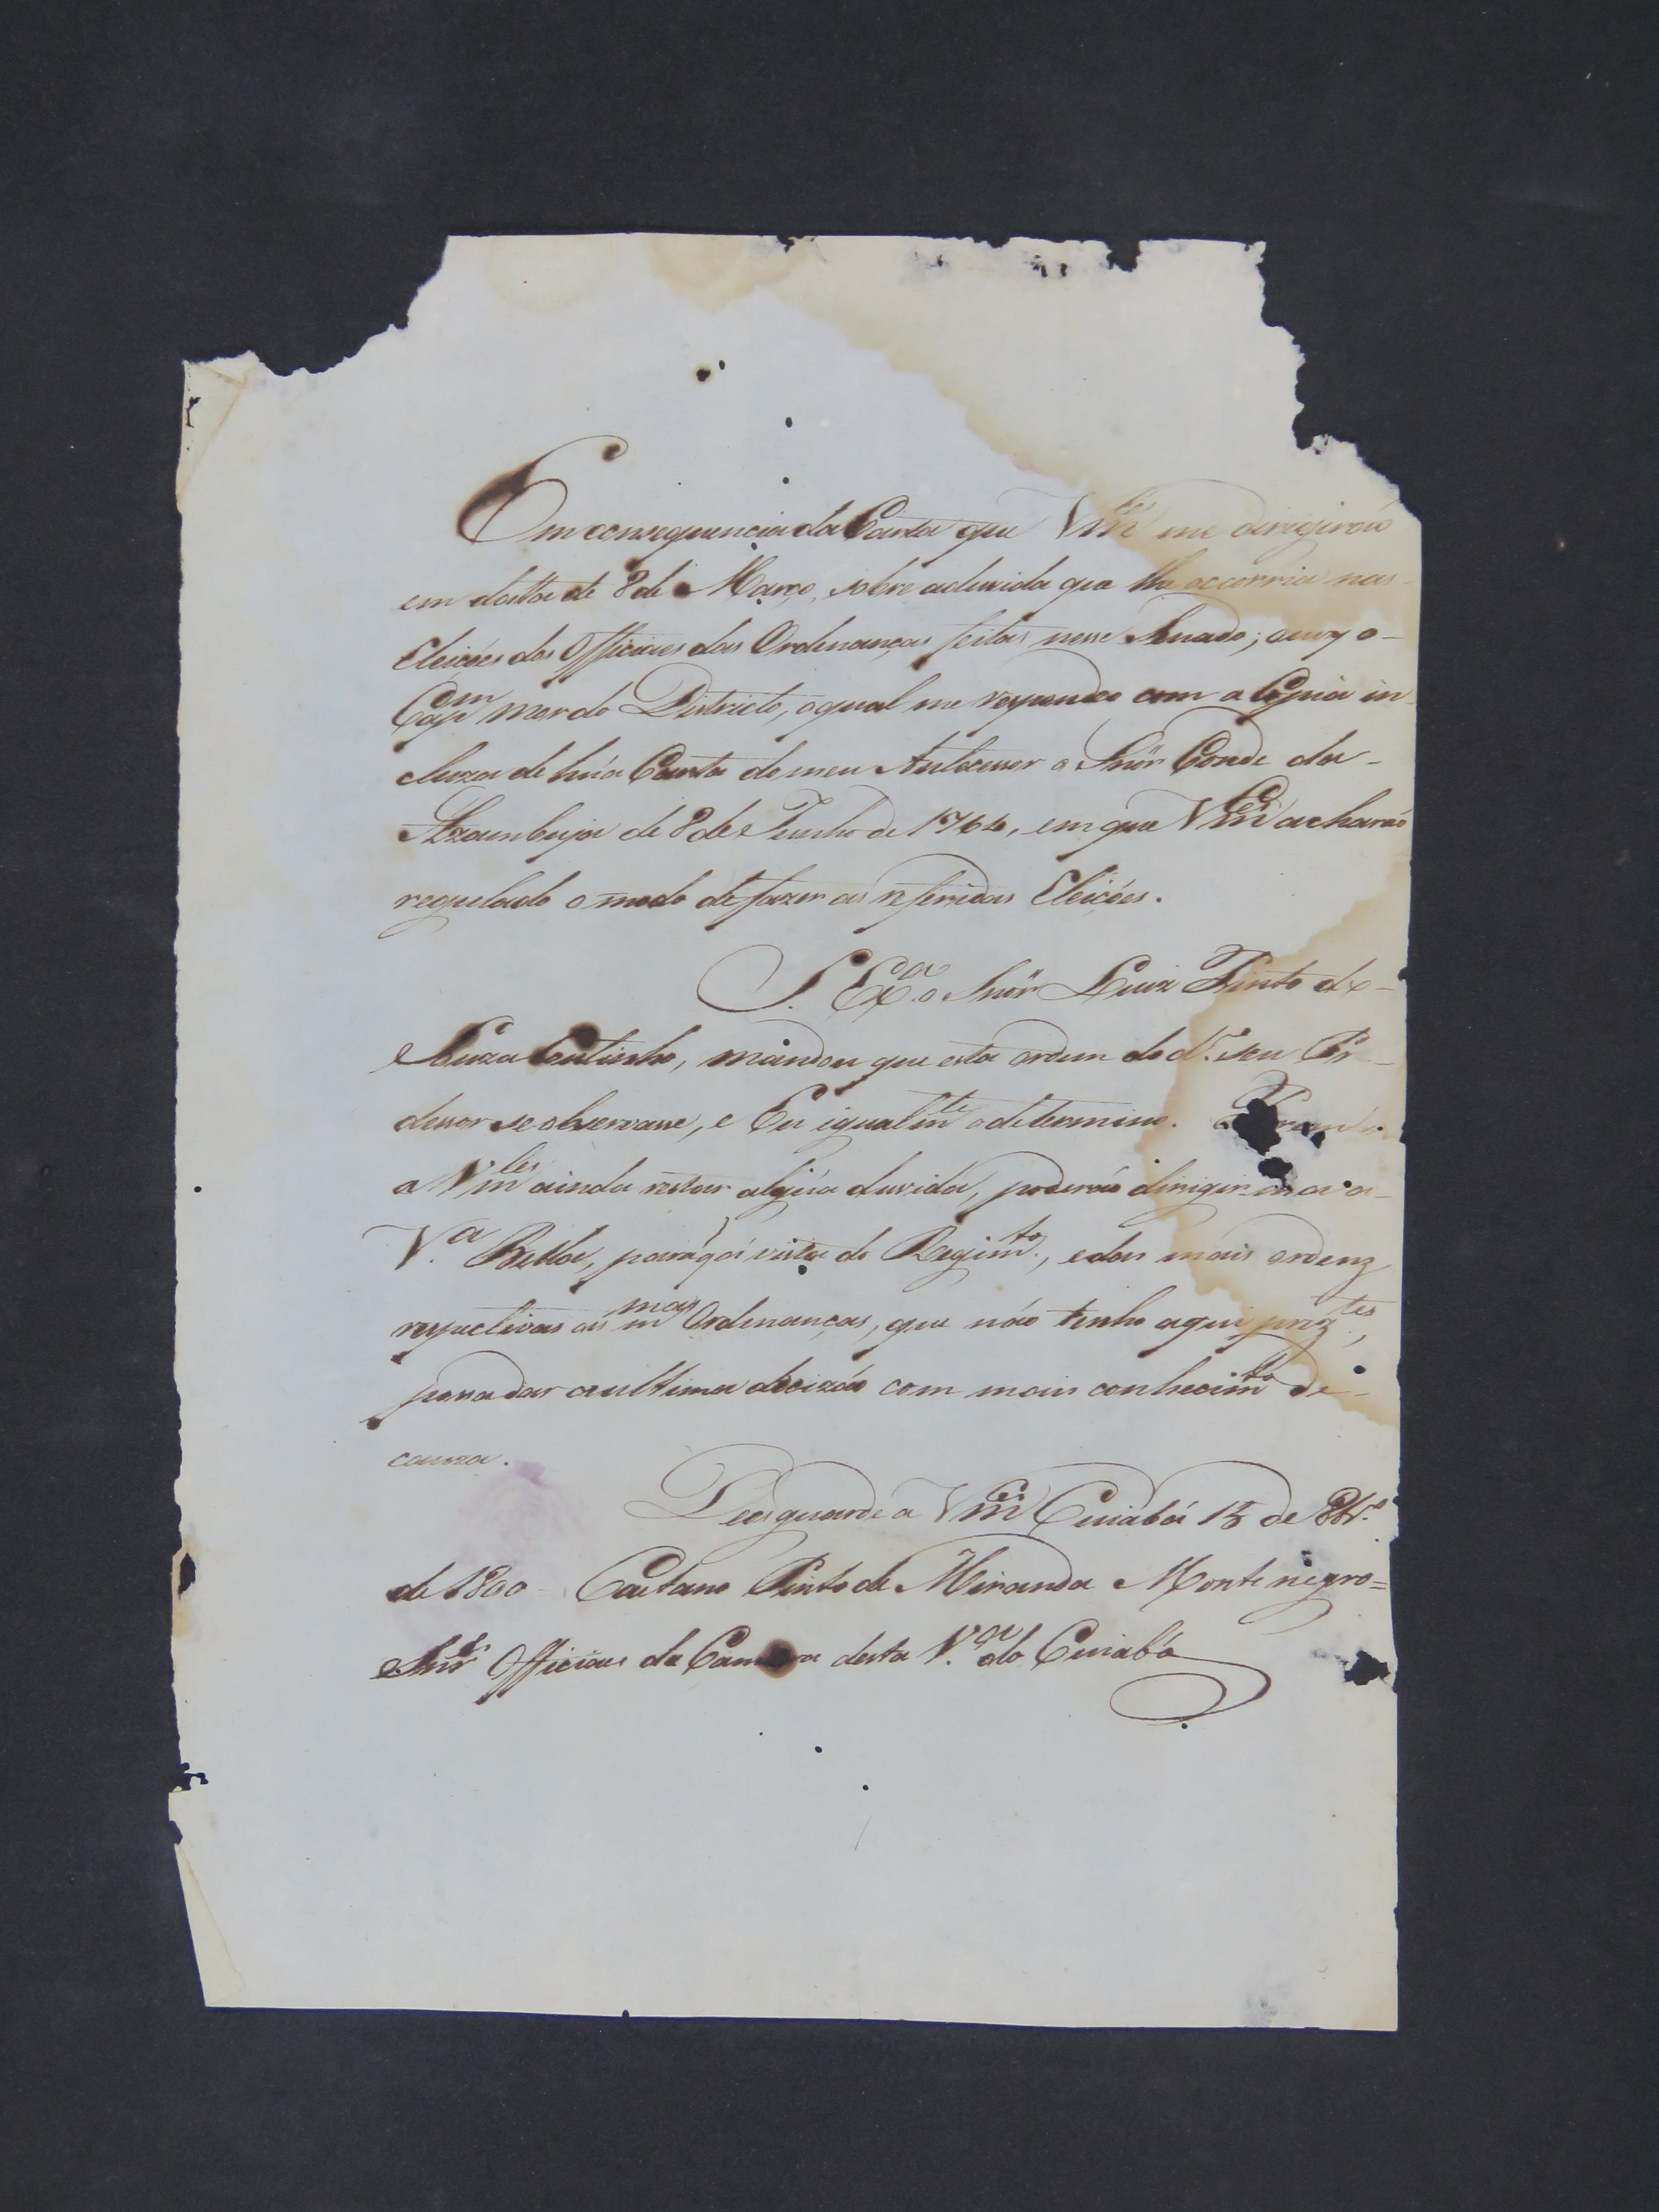 Em consequencia da Carta que Vm.ces me dirigiráo
em datta de 8 de Março, sobre a duvida que lhe occorria nas
Eleições dos Officiaes das Ordenanças feitas nesse Senado; ouvy o
Cap.m mor do Districto, o qual me respondeo com a Cópia in-
cluza de húa Carta do meu Antecessor o Snõr Conde da
Azambuja de 8 de Junho de 1764, em que Vm.ces acharáo
regulado o modo de fazer as referidas Eleições.
S. Ex.a o Snõr Luiz Pinto de
Souza Coutinho, mandou que esta ordem do d.o seu
dessor se observasse, e Eu igualm.te o determino.
a Vm.ces ainda restar algúa duvida, poderáo dirigir a
V.a Bella, para q' á vista do Regim.to, e das mais ordenz
respectivas ás m.mas Ordenanças, que não tenho aqui prez.tes,
possa dar a ultima decizáo com mais conhecim.to de
cauza.
Deos guarde a Vm.ces Cuiabá 15 de
de 1800 Caetano Pinto de Miranda Montenegro=
Snr.s Officiaes da Camera desta V.a do Cuiabá